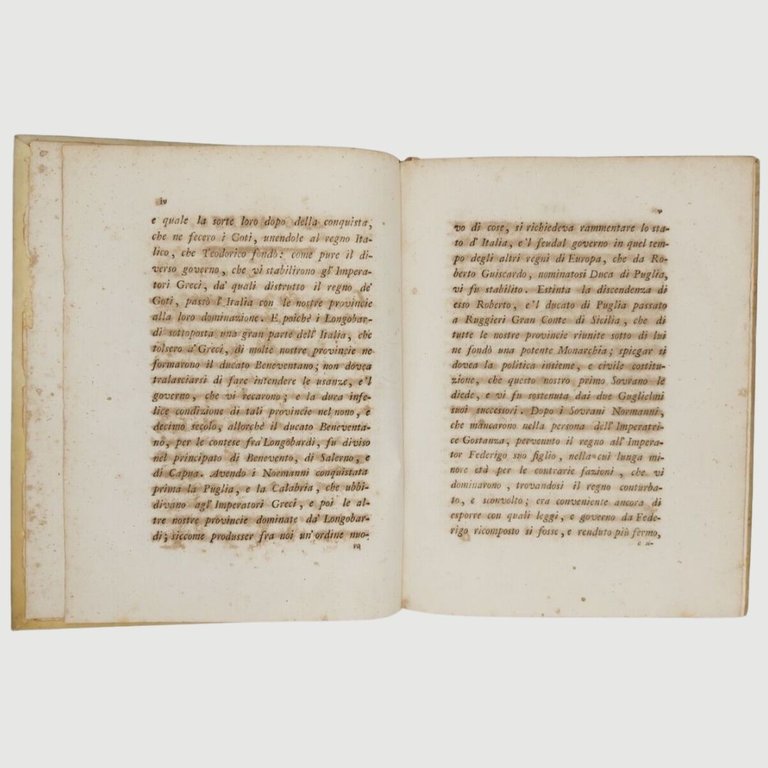 iv
e quale la sorte loro dopo della conquista,
che ne fecero i Goti, unendole al regno Ita-
lico, che Teodorico fondò: come pure il di-
verso governo, che vi stabilirono gl' Impera-
tori Greci, da' quali distrutto il regno de'
Goti, passò l'Italia con le nostre provincie
alla loro dominazione. E poichè i Longobar-
di sottoposta una gran parte dell'Italia, che
tolsero a' Greci, di molte nostre provincie ne
formarono il ducato Beneventano; non dovea
tralasciarsi di fare intendere le usanze, e'l
governo, che vi recarono; e la dura infe-
lice condizione di tali provincie nel nono, e
decimo secolo, allorchè il ducato Beneventa-
no, per le contese fra' Longobardi, fu diviso
nel principato di Benevento, di Salerno, e
di Capua. Avendo i Normanni conquistata
prima la Puglia, e la Calabria, che ubbi-
divano agl' Imperatori Greci, e poi le al-
tre nostre provincie dominate da' Longobar-
di; siccome produsser fra noi un' ordine nuo-
vo
v
vo di cose, si richiedeva rammentare lo sta-
to d'Italia, e'l feudal governo in quel tem-
po degli altri regni di Europa, che da Ro-
berto Guiscardo, nominatosi Duca di Puglia,
vi fu stabilito. Estinta la discendenza di
esso Roberto, e'l ducato di Puglia passato
a Ruggieri Gran Conte di Sicilia, che di
tutte le nostre provincie riunite sotto di lui
ne fondò una potente Monarchia; spiegar si
dovea la politica insieme, e civile costitu-
zione, che questo nostro primo Sovrano le
diede, e vi fu sostenuta dai due Guglielmi
suoi successori. Dopo i Sovrani Normanni,
che mancarono nella persona dell' Imperatri-
ce Costanza, pervenuto il regno all' Impera-
tor Federigo suo figlio, nella cui lunga mi-
nore età per le contrarie fazioni, che vi
dominarono, trovandosi il regno conturba-
to, e sconvolto; era conveniente ancora di
esporre con quali leggi, e governo da Fede-
rigo ricomposto si fosse, e renduto più fermo,
e u-